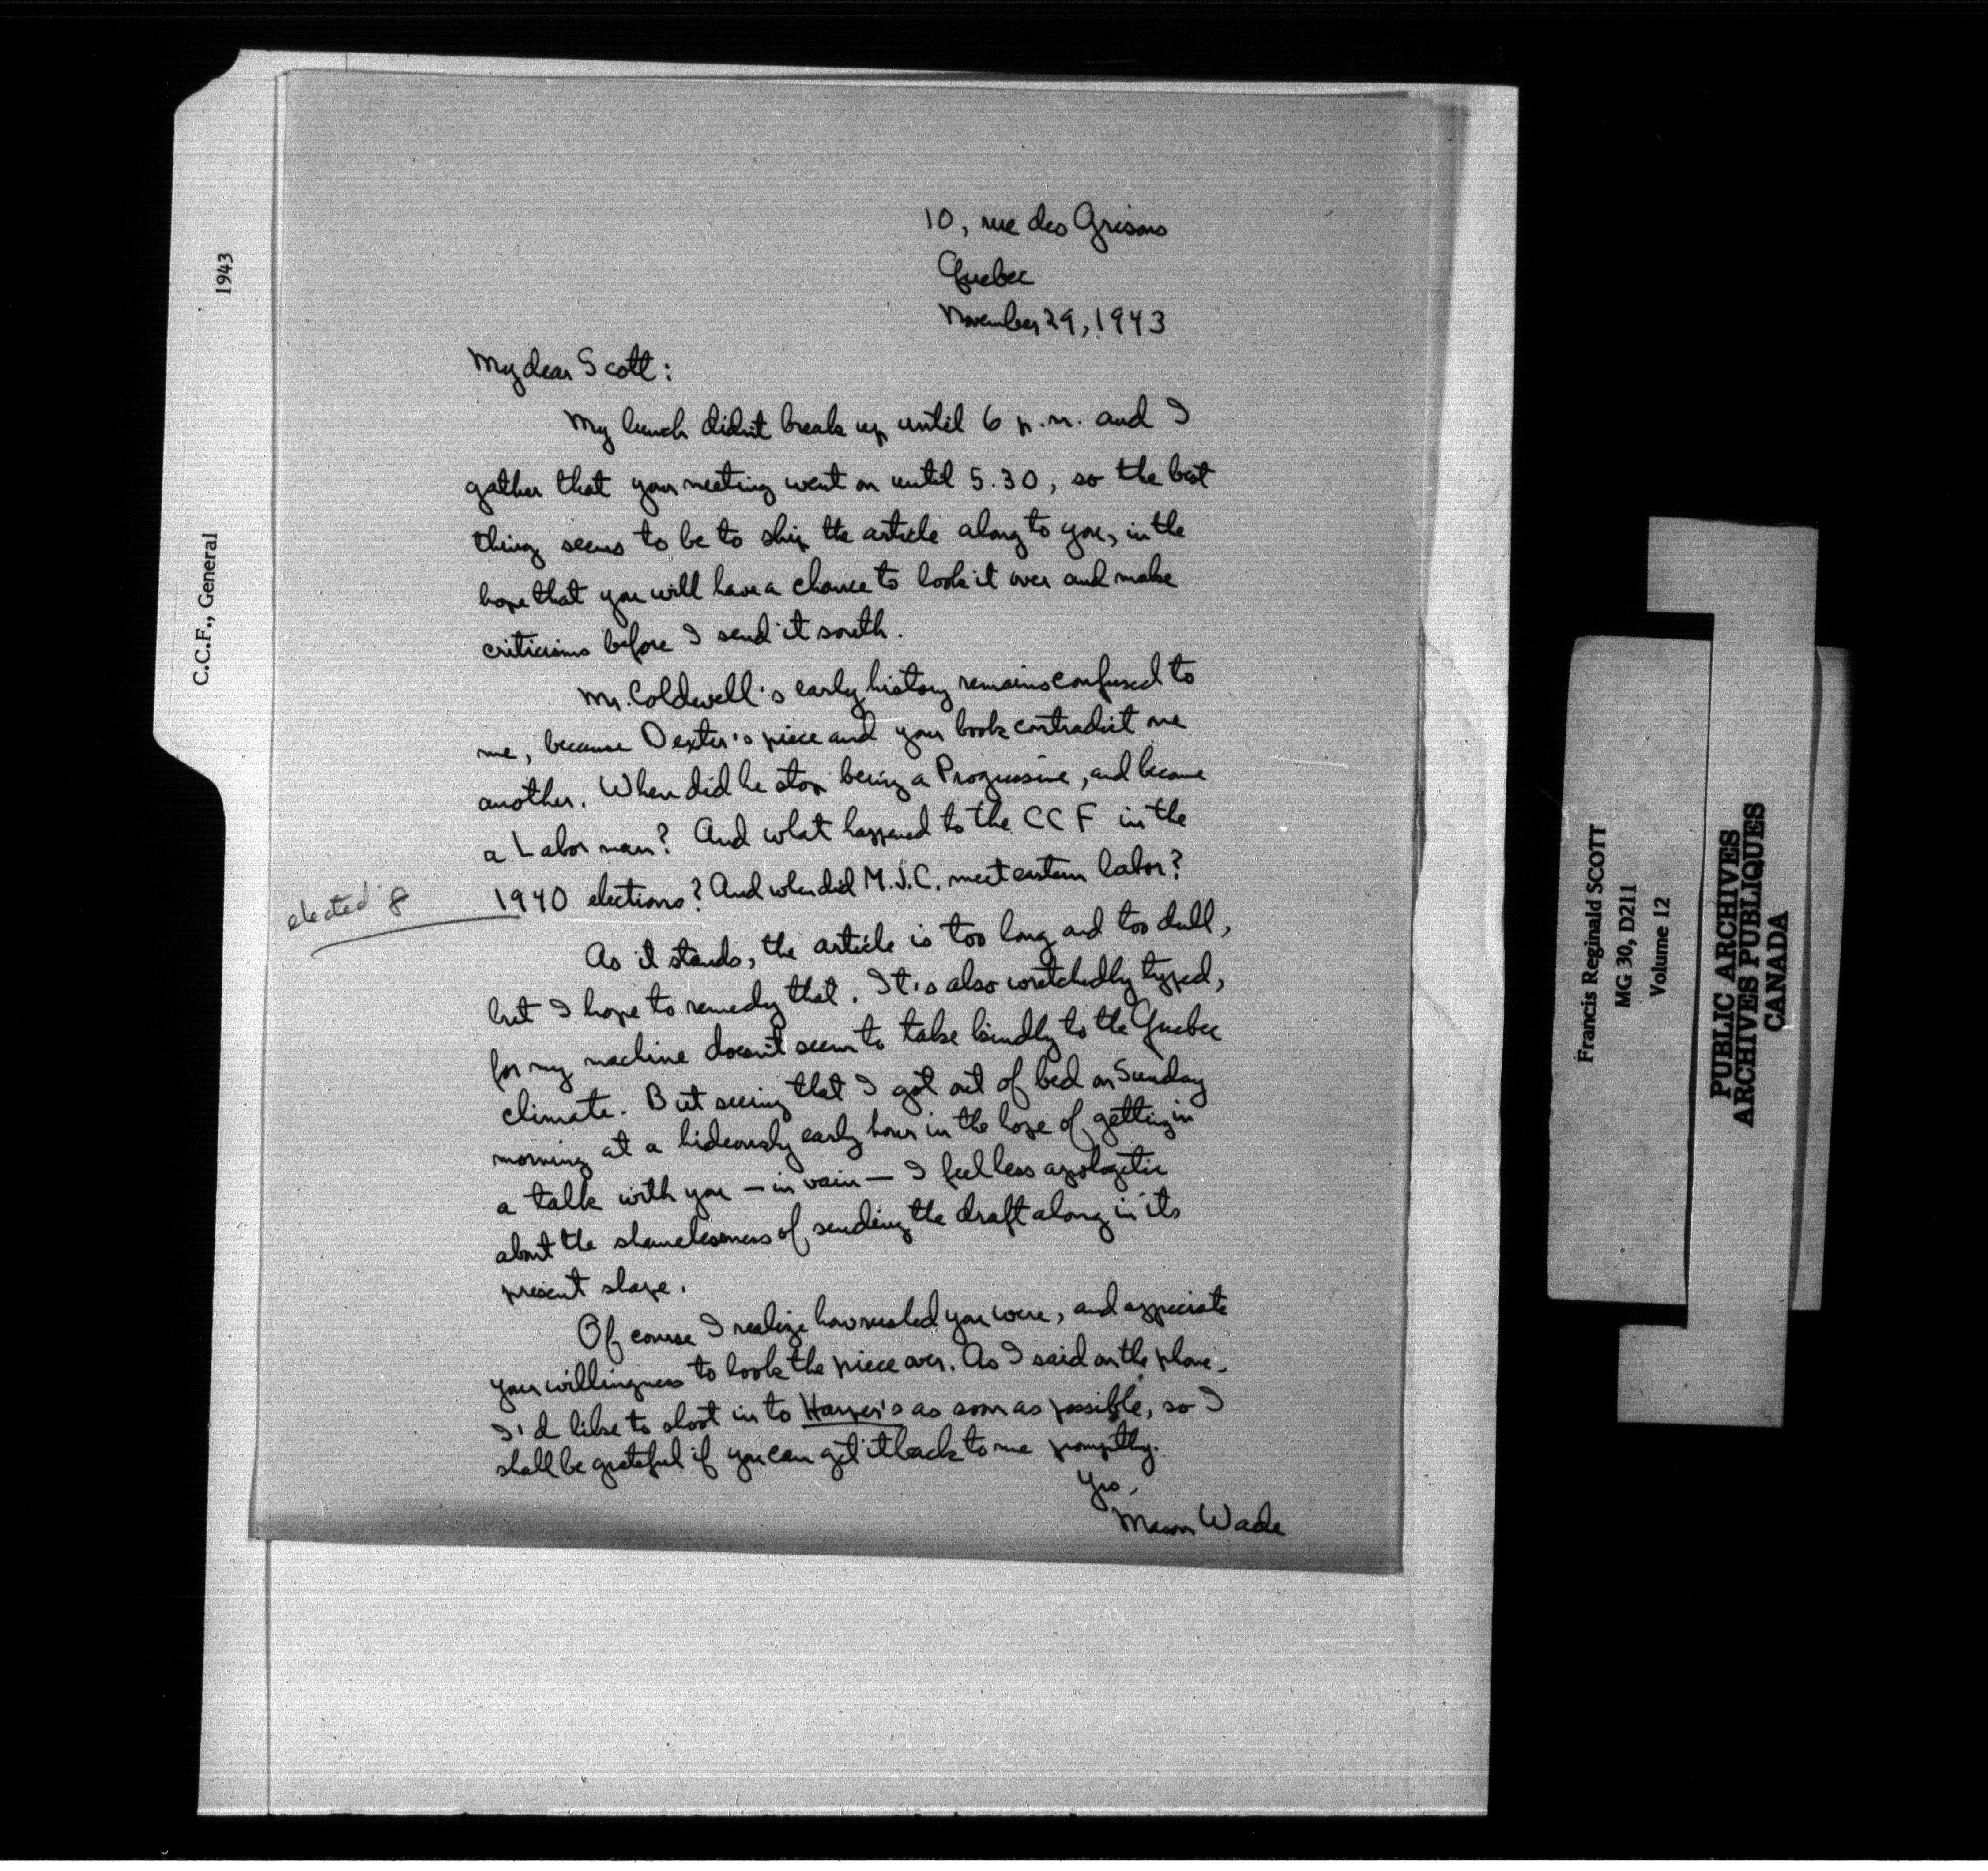 10, rue des Grisons
Quebec
November 29, 1943
My dear Scott:
My lunch didn't break up until 6 p.m. and I
gather that your meeting went on until 5.30, so the best
thing seems to be to ship the article along to you, in the
hope that you will have a chance to look it over and make
criticisms before I send it south.
Mr. Coldwell's early history remains confused to
me, because Dexter's piece and your book contradict one
another. When did he stop being a Progressive, and become
a Labor man? And what happened to the CCF in the
1940 elections? And when did M.J.C. meet eastern labor?
elected 8
As it stands, the article is too long and too dull,
but I hope to remedy that. It's also wretchedly typed,
for my machine doesn't seem to take kindly to the Quebec
climate. But seeing that I got out of bed on Sunday
morning at a hideously early hour in the hope of getting in
a talk with you — in vain — I feel less apologetic
about the shamelessness of sending the draft along in its
present shape.
Of course I realize how rushed you were, and appreciate
your willingness to look the piece over. As I said on the phone,
I'd like to shoot in to Harper's as soon as possible, so I
shall be grateful if you can get it back to me promptly.
Yrs,
Mason Wade
C.C.F., General 1943
Francis Reginald SCOTT
MG 30, D211
Volume 12
PUBLIC ARCHIVES
ARCHIVES PUBLIQUES
CANADA